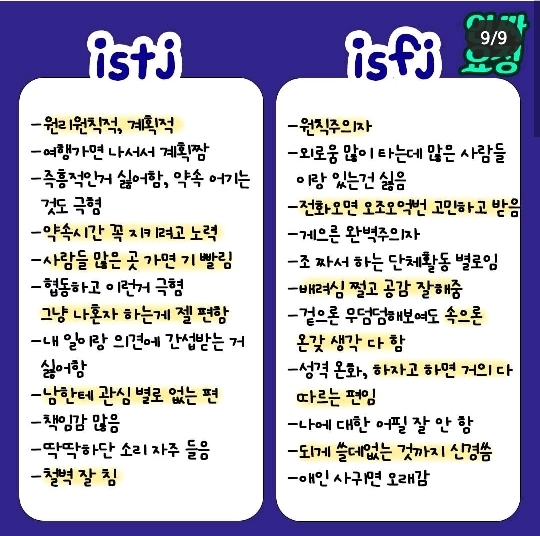 istj
-원리원칙적, 계획적
-여행가면 나서서 계획짬
-즉흥적인거 싫어함, 약속 어기는
것도 극혐
-약속시간 꼭 지키려고 노력
-사람들 많은 곳 가면 기 빨림
-협동하고 이런거 극혐
그냥 나혼자 하는게 젤 편함
-내 일이랑 의견에 간섭받는 거
싫어함
-남한테 관심 별로 없는 편
-책임감 많음
-딱딱하단 소리 자주 들음
-철벽 잘 침
isfj
9/9
-원칙주의자
-외로움 많이 타는데 많은 사람들
이랑 있는건 싫음
-전화오면 오조오억번 고만하고 받음
-게으른 완벽주의자
-조 짜서 하는 단체활동 별로임
-배려심 쩔고 공감 잘해줌
-겉으론 무덤덤해보여도 속으론
온갖 생각 다 함
-성격 온화, 하자고 하면 거의 다
따르는 편임
-나에 대한 어필 잘 안 함
-되게 쓸데없는 것까지 신경씀
-애인 사귀면 오래감